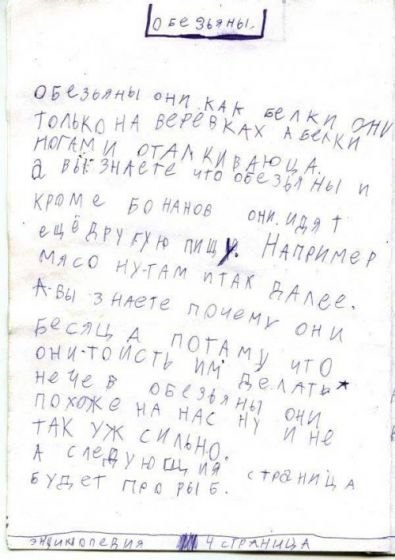 ОБЕЗЬЯНЫ.
ОБЕЗЬЯНЫ ОНИ КАК БЕЛКИ ОНИ
ТОЛЬКО НА ВЕРЕВКАХ А БЕЛКИ
НОГАМИ ОТАЛКИВАЮЦА.
А ВЫ ЗНАЕТЕ ЧТО ОБЕЗЬЯНЫ И
КРОМЕ БОНАНОВ ОНИ ИДЯТ
ЕЩЁ ДРУГУЮ ПИЩУ. НАПРИМЕР
МЯСО НУ-ТАМ ИТАК ДАЛЕЕ.
А-ВЫ ЗНАЕТЕ ПОЧЕМУ ОНИ
БЕСЯЦА ПОТАМУ ЧТО
ОНИ-ТОИСТЬ ИМ ДЕЛАТЬ
НЕЧЕВ ОБЕЗЬЯНЫ ОНИ
ПОХОЖЕ НА НАС НУ И НЕ
ТАК УЖ СИЛЬНО.
А СЛЕДУЮЩИЯ СТРАНИЦА
БУДЕТ ПРО РЫБ.
ЭНЦИКЛОПЕДИЯ 4 СТРАНИЦА